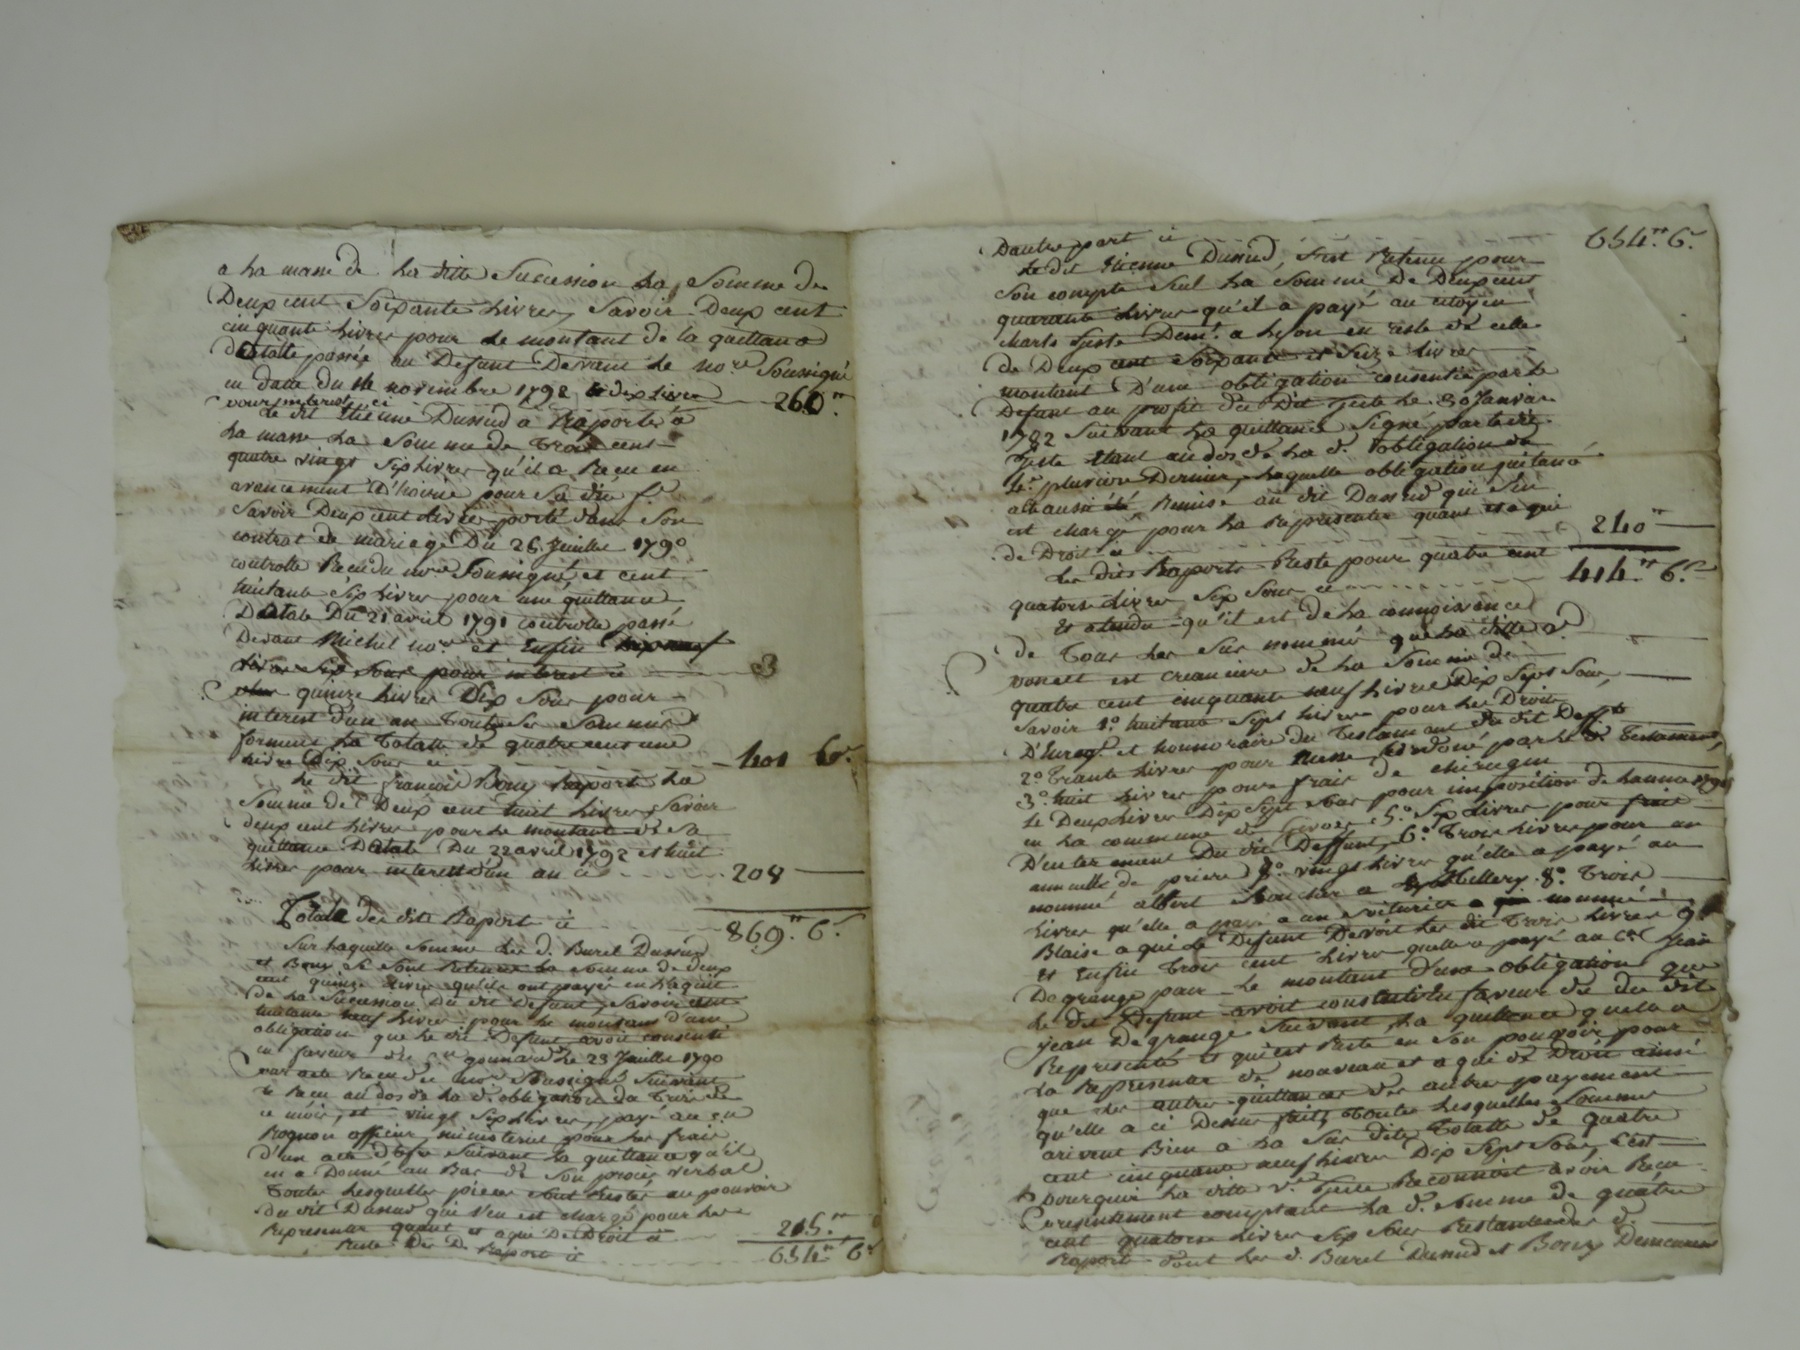 a La masse de La ditte Sucession La Somme de
Deux cent Soixante Livres, Savoir Deux cent
cinquante Livres pour Le montant de la quittance
Dotalle passée au Defunt Devant Le no.re Soussigné
en datte du novembre 1792 & dix Livres
pour interest ci 260."
Le dit Etienne Dussud a Raporté a
La masse La Somme de Trois cent
quatre vingt Sept Livres qu'il a Recu en
avancement D'hoirie pour Sa
Savoir Deux cent Livres porté dans Son
contrat de mariage Du 26 Juillet 1790
controllé Recu du no.re Soussigné, et cent
huitante Sept Livres pour une quittance
Dotale Du 21 avril 1791 controllé passé
Devant Michel no.re et Enfin
Livres Six Sous pour interest ci
quinze Livres Dix Sous pour
interest d'un an Toutes Les Sommes
forment La Totalle de quatre cent une
Livre Six Sous ci 401 6.s
Le dit francois Bony Raporte La
Somme de Deux cent huit Livres, Savoir
deux cent Livres pour Le montant de Sa
quittance Dotale Du 22 avril 1792 et huit
Livres pour interest d'un an ci 208
Totale des dits Raport ci 869." 6.s
Sur Laquelle Somme Les d. Burel Dussud
et Bony Se Sont Retenu La Somme de deux
cent quinze Livres qu'ils ont payés en Laquit
de La Sucession Du dit defunt, Savoir cent
huitante neuf Livres pour Le montant d'une
obligation que Le dit Defunt avoit consenti
en faveur du c.en gonnard Le 23 Juillet 1790
par acte Recu du no.re Soussigné Suivant
Le Recu au dos de La d. obligation du Trois de
ce mois, et vingt Six Livres, payé au c.en
Rognon officier ministeriel pour Les frais
D'un acte Suivant La quittance qu'il
en a Donné au Bas de Son procès verbal
Toutes Lesquelles pieces Sont Restés au pouvoir
du dit Dussud qui S'en est chargé pour Les
Representer quant et a qui De Droit ci 215."
Reste Des D. Raport ci 654." 6.s
D'autre part ci 654." 6.s
Le dit Etienne Dussud, S'est Retenu pour
Son compte Seul La Somme De Deux cent
quarante Livres qu'il a payé au citoyen
charle Juste Dem.t a Lyon en reste de celle
de Deux cent Soixante et Seize Livres
montant D'une obligation consentie par Le
Defunt au profit du Dit Juste Le 30 Janvier
1782 Suivant La quittance Signé par Le dit
Juste Etant au dos de La d. obligation
Le pluviose Dernier, Laquelle obligation quitancé
a aussi été Remise au dit Dussud qui S'en
est chargé pour La Representer quant et a qui
de Droit ci 240"
Les dits Raports Reste pour quatre cent
quatorse Livres Six Sous ci 414." 6.s
Et atendu qu'il est De La connoissance
de Tous Les Sus nommés que La ditte v.e
est creanciere de La Somme de
quatre cent cinquante neuf Livres Dix Sept Sous,
Savoir 1.o huitante Sept Livres pour Les Droits
D'Enreg.t et honnoraire du Testament du dit Deff.t
2.o Trante Livres pour Messe, ordonné par Le d. Testament,
3.o huit Livres pour frais de chirugien
4.o Deux Livres Dix Sept Sous pour imposition de Lannee 1791
en La commune de 5.o Six Livres pour frais
D'enterement Du dit Deffunt, 6.o Trois Livres pour un
annuelle de priere 7.o vingt Livres qu'elle a payé au
nommé albert Boucher a 8.o Trois
Livres qu'elle a payé a un voiturier nommé
Blaise a qui Le Defunt Devoit Les dit Trois Livres 9.o
et Enfin Trois cent Livres quelle a payé au c.en Jean
Degrange pour Le montant d'une obligation que
Le dit Defunt avoit consenti En faveur du dit
Jean Degrange Suivant La quittance quelle a
Representé & qui est Resté en Son pouvoir pour
La Representer de nouveau et a qui de Droit ainsi
que Les autres quittances des autres payement
qu'elle a ci Dessus fait, Toutes Lesquelles Sommes
arivent Bien a La Sus dite Totalle de quatre
cent cinquante neuf Livres Dix Sept Sous, C'est
pourquoi La ditte v.e Juste Reconnoit avoir Recu
presentement comptant La d. Somme de quatre
cent quatorse Livres Six Sous Restante des d.
Raports dont Les d. Burel Dussud et Bony Demeurent